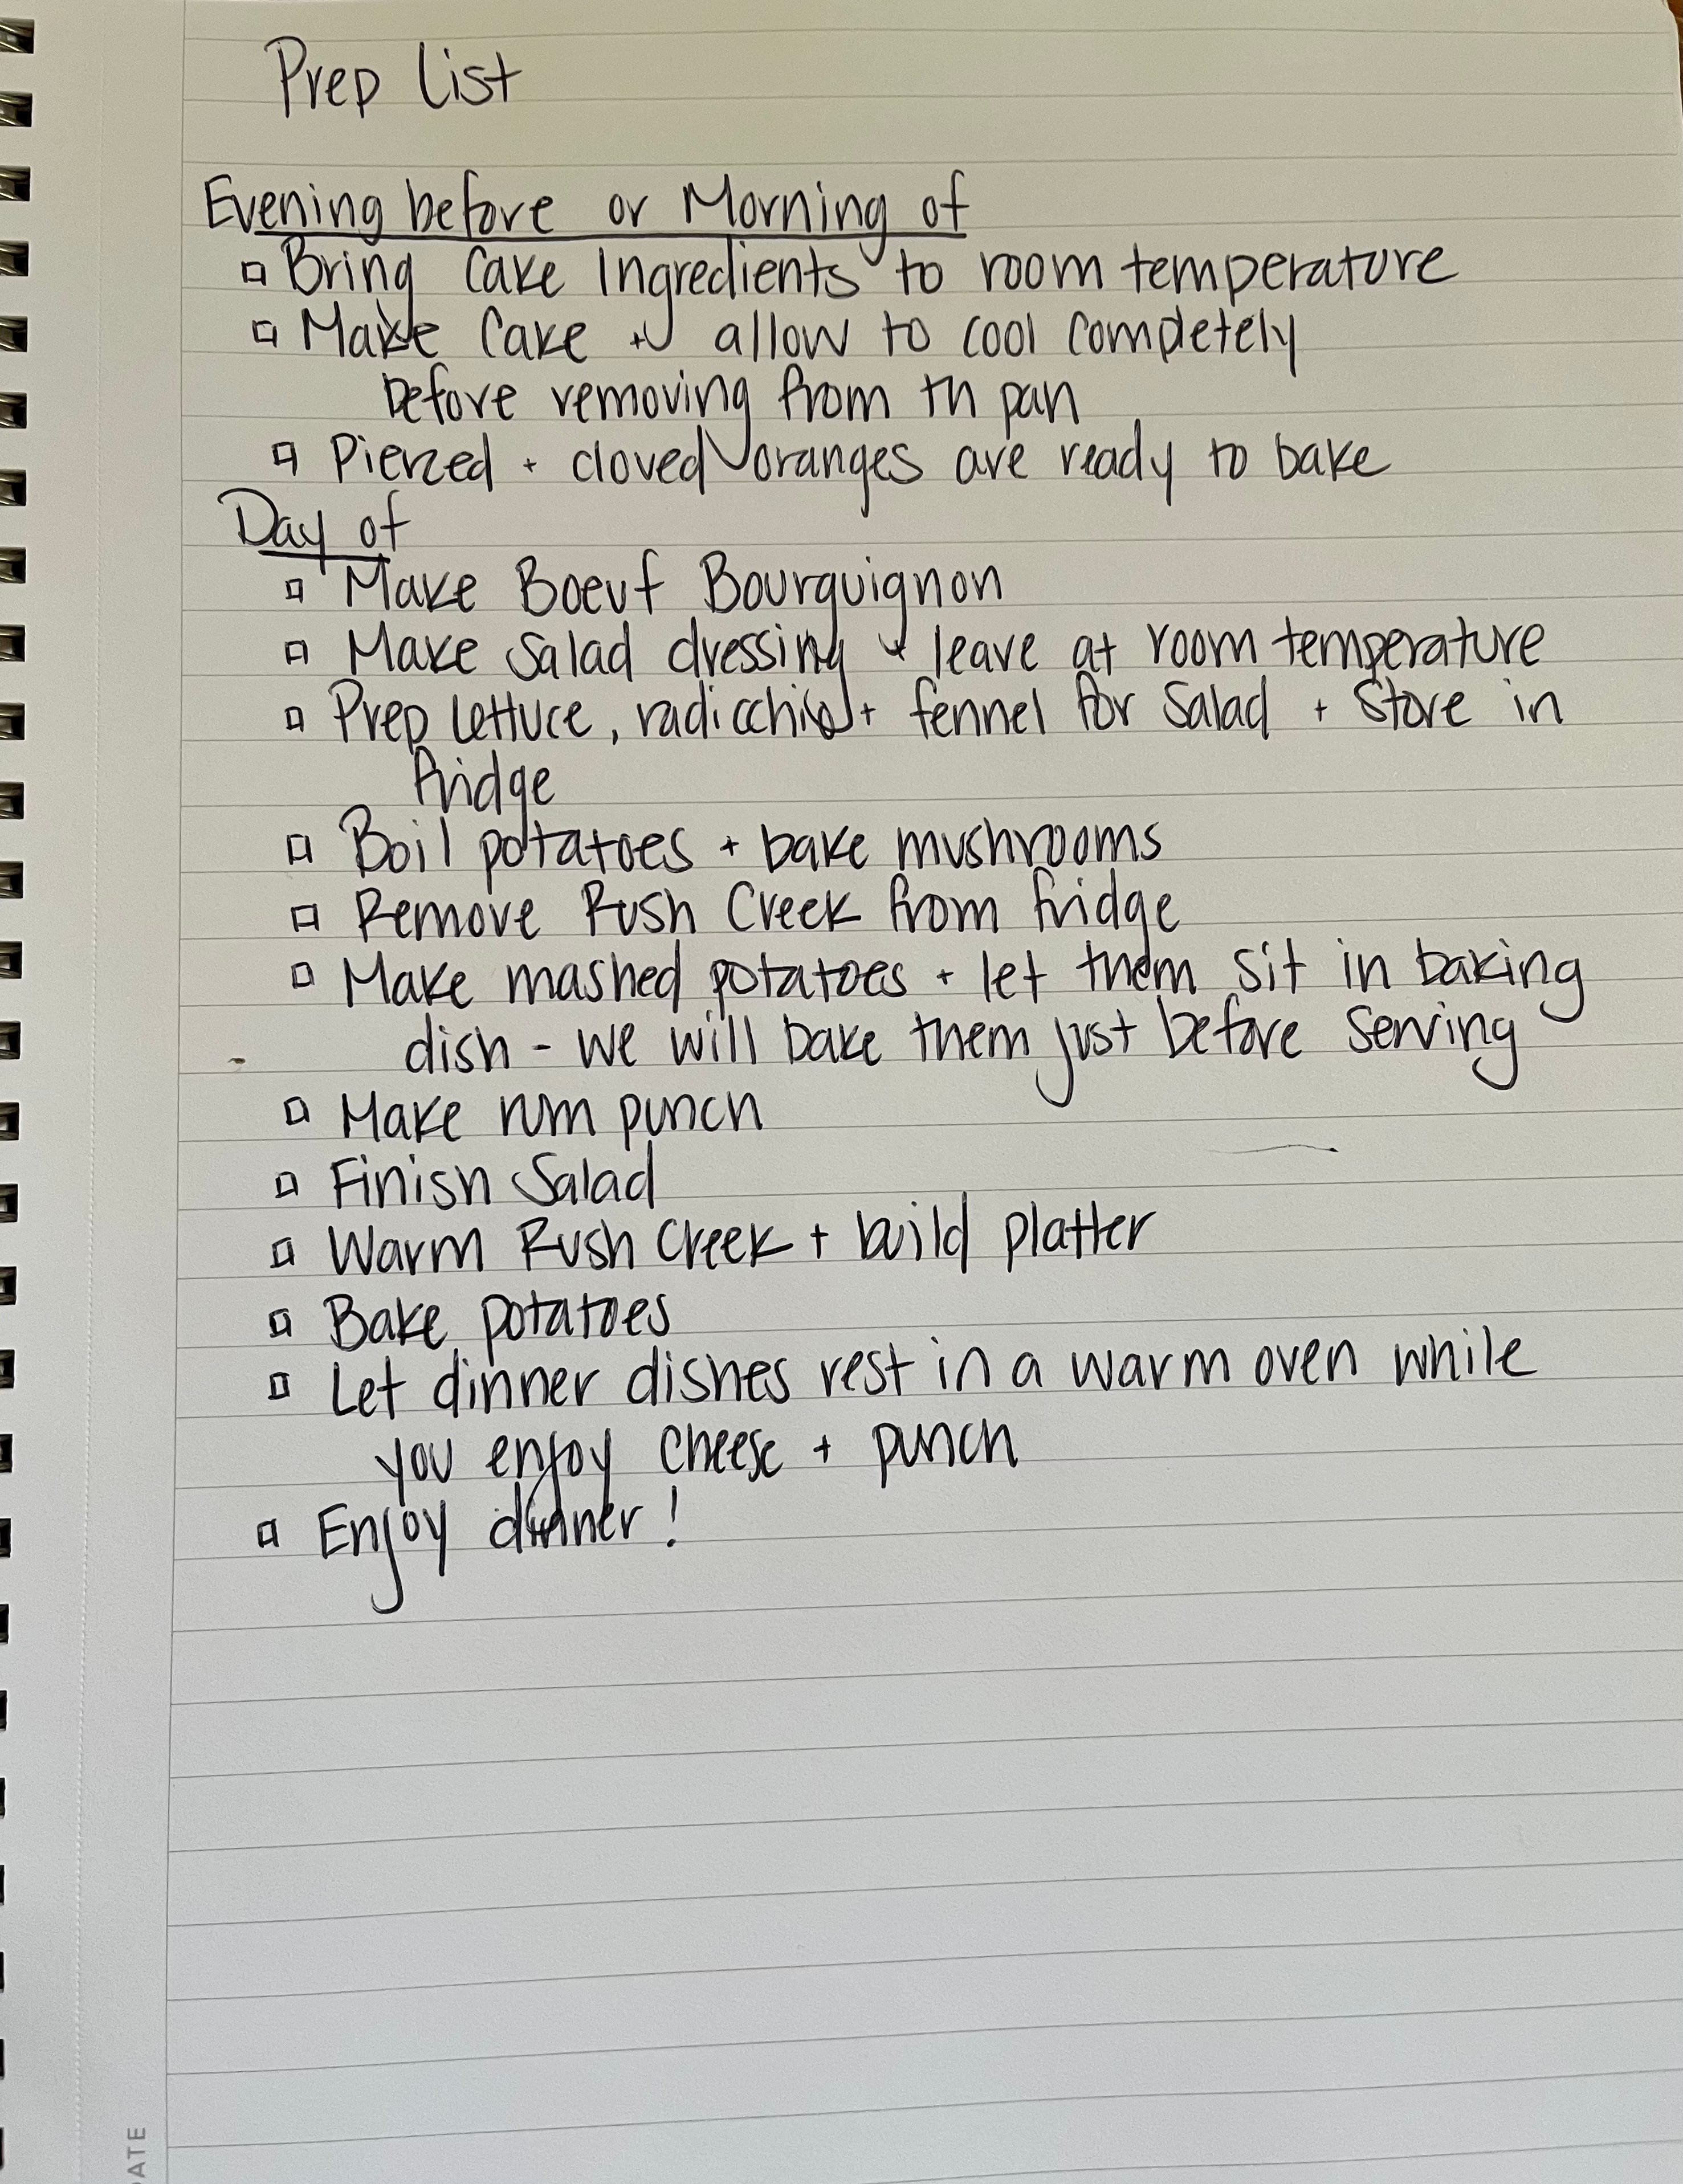 Prep List
Evening before or Morning of
Bring Cake Ingredients to room temperature
Make Cake + allow to cool completely
Before removing from th pan
Pierced + cloved oranges are ready to bake
Day of
Make Boeuf Bourguignon
Make Salad dressing + leave at room temperature
Prep Lettuce, radicchio + fennel for Salad + Store in
fridge
Boil potatoes + bake mushrooms
Remove Rush Creek from fridge
Make mashed potatoes + let them sit in baking
dish - we will bake them just before serving
Make rum punch
Finish Salad
Warm Rush Creek + build platter
Bake potatoes
Let dinner dishes rest in a warm oven while
you enjoy cheese + punch
Enjoy dinner!